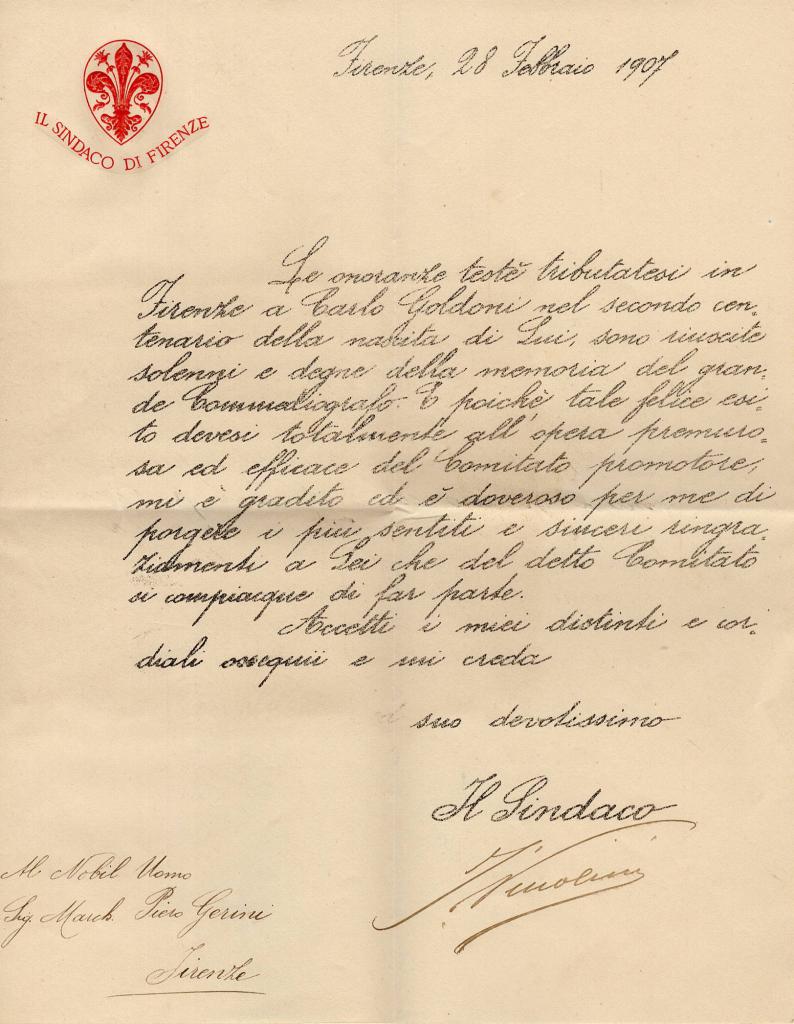 IL SINDACO DI FIRENZE
Firenze, 28 Febbraio 1907
Le onoranze testè tributatesi in
Firenze a Carlo Goldoni nel secondo cen-
tenario della nascita di Lui, sono riuscite
solenni e degne della memoria del gran-
de Commediografo. E poichè tale felice esi-
to devesi totalmente all'opera premuro-
sa ed efficace del Comitato promotore,
mi è gradito ed è doveroso per me di
porgere i più sentiti e sinceri ringra-
ziamenti a Lei che del detto Comitato
si compiacque di far parte.
Accetti i miei distinti e cor-
diali ossequii e mi creda
suo devotissimo
Il Sindaco
Al Nobil Uomo
Sig. March. Piero Gerini
Firenze